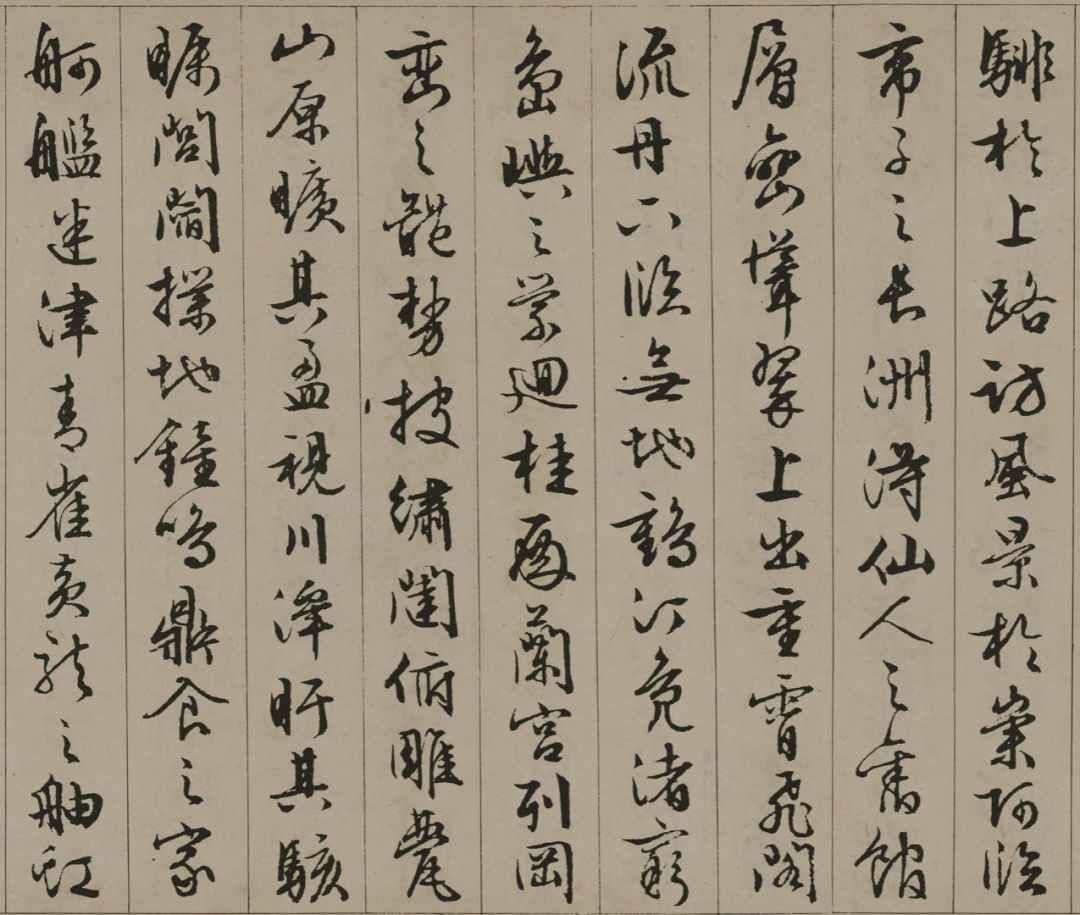 騑於上路訪風景於崇阿臨
帝子之長洲得仙人之舊館
層巒聳翠上出重霄飛閣
流丹下臨無地鶴汀鳧渚窮
島嶼之縈迴桂殿蘭宮列岡
巒之體勢披繡闥俯雕甍
山原曠其盈視川澤盱其駭
矚閭閻撲地鐘鳴鼎食之家
舸艦迷津青雀黃龍之舳虹